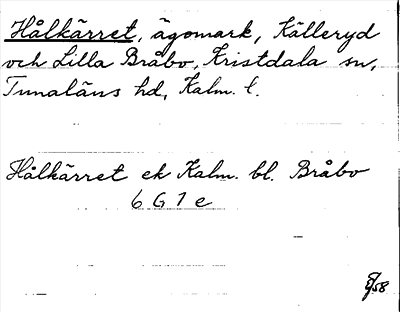 Hålkärret, ägomark, Källeryd
och Lilla Bråbo, Kristdala sn,
Tunaläns hd, Kalm. l.
Hålkärret ek Kalm. bl. Bråbo
6 G 1 e